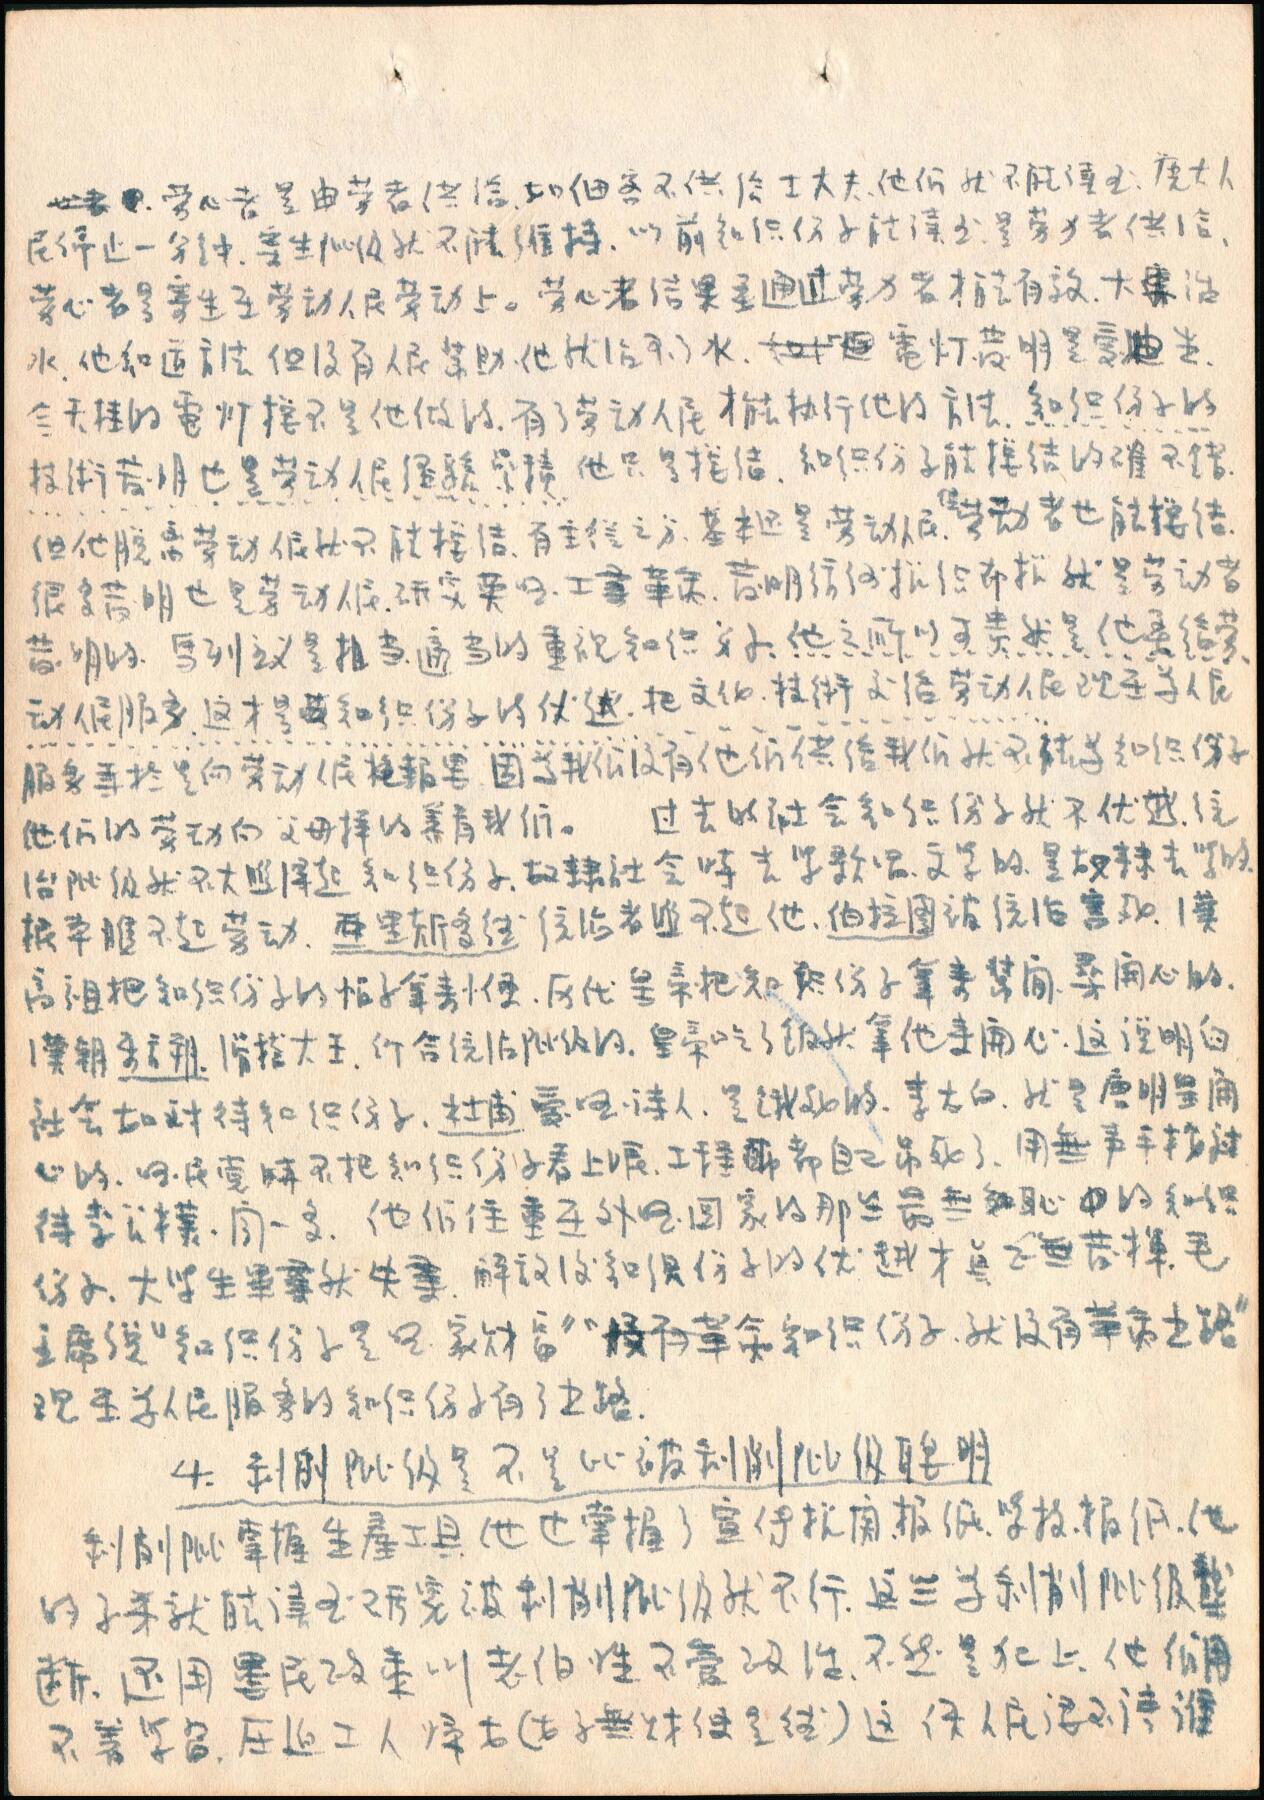 劳心者是由劳者供给,如佃客不供给士大夫,他们就不能读书,广大人
民停止一分钟,寄生阶级就不能维持,以前知识份子能读书是劳力者供给,
劳心者是寄生在劳动人民劳动上。劳心者结果要通过劳力者才能有效,大禹治
水,他知道方法但没有人民帮助,他就治不了水,電灯發明是爱迪生,
今天挂的電灯樣不是他做的,有了劳动人民才能执行他的方法,知识份子的
技術發明也是劳动人民經驗累積他只是總结,知识份子能總结的確不錯,
但他脱离劳动人民就不能總结,有主從之分,基本还是劳动人民,劳动者也能總结,
很多發明也是劳动人民,研究英国工業革命,發明纺纱機织布機就是劳动者
發明的,馬列主义是相当適当的重視知识分子,他之所以可贵就是他要给劳
动人民服务,这才是知识份子的优越,把文化,技術交给劳动人民现在为人民
服务等於是向劳动人民报,因为我们没有他们供给我们就不能为知识份子
他们的劳动向父母樣的养育我们。 过去的社会知识份子就不优越,统
治阶级就不大瞧得起知识份子,奴隸社会時去学歌唱,文学的,是奴隸去学的,
根本瞧不起劳动,亚里斯多德统治者瞧不起他,伯拉圖被统治害死,漢
高祖把知识份子的帽子拿来小便,历代皇帝把知識份子拿来幫閒,尋開心的,
漢朝东方朔,滑稽大王,符合统治阶级的,皇帝吃了饭就拿他来開心,这说明旧
社会如对待知识份子,杜甫爱国诗人,是饿死的,李太白,就是唐明皇開
心的,国民党時不把知识份子看上眼,工程師都自己吊死了,用無声手槍对
待李公樸,闻一多,他们住重在外国回家的那些最無恥的知识
份子,大学生畢業就失業,解放後知识份子的优越才真正發揮,毛
主席说“知识份子是国家财富”“没有革命知识份子,就没有革命出路”
现在为人民服务的知识份子有了出路.
4. 剥削阶级是不是比被剥削阶级聪明
剥削阶掌握生產工具他也掌握了宣传机関,报纸,学校,报纸,他
的子弟就能读书研究被剥削阶级就不行,这些为剥削阶级壟
断,还用愚民政策叫老伯性不管政治,不然是犯上,他们用
不着学習,压迫工人妇女(女子無才便是德)这使人民谬不读